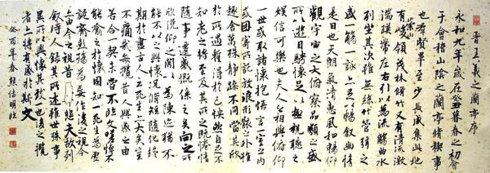 晉王羲之蘭亭序
永和九年歲在癸丑暮春之初會
于會稽山陰之蘭亭脩禊事
也群賢畢至少長咸集此地
有崇山峻領茂林脩竹又有清流激
湍暎帶左右引以為流觴曲水
列坐其次雖無絲竹管弦之盛
一觴一詠亦足以暢敘幽情
是日也天朗氣清惠風和暢仰
觀宇宙之大俯察品類之盛
所以遊目騁懷足以極視聽之
娛信可樂也夫人之相與俯仰
一世或取諸懷抱悟言一室之內
或因寄所託放浪形骸之外雖
趣舍萬殊靜躁不同當其欣
於所遇暫得於己快然自足不
知老之將至及其所之既惓情
隨事遷感慨係之矣向之所
欣俛仰之間以為陳迹猶不
能不以之興懷況脩短隨化終
期於盡古人云死生亦大矣豈
不痛哉每攬昔人興感之由
若合一契未嘗不臨文嗟悼不
能喻之於懷固知一死生為虛
誕齊彭殤為妄作後之視今
亦由今之視昔悲夫故列
敘時人錄其所述雖世殊事
異所以興懷其致一也後之攬
者亦將有感於斯文
癸酉年